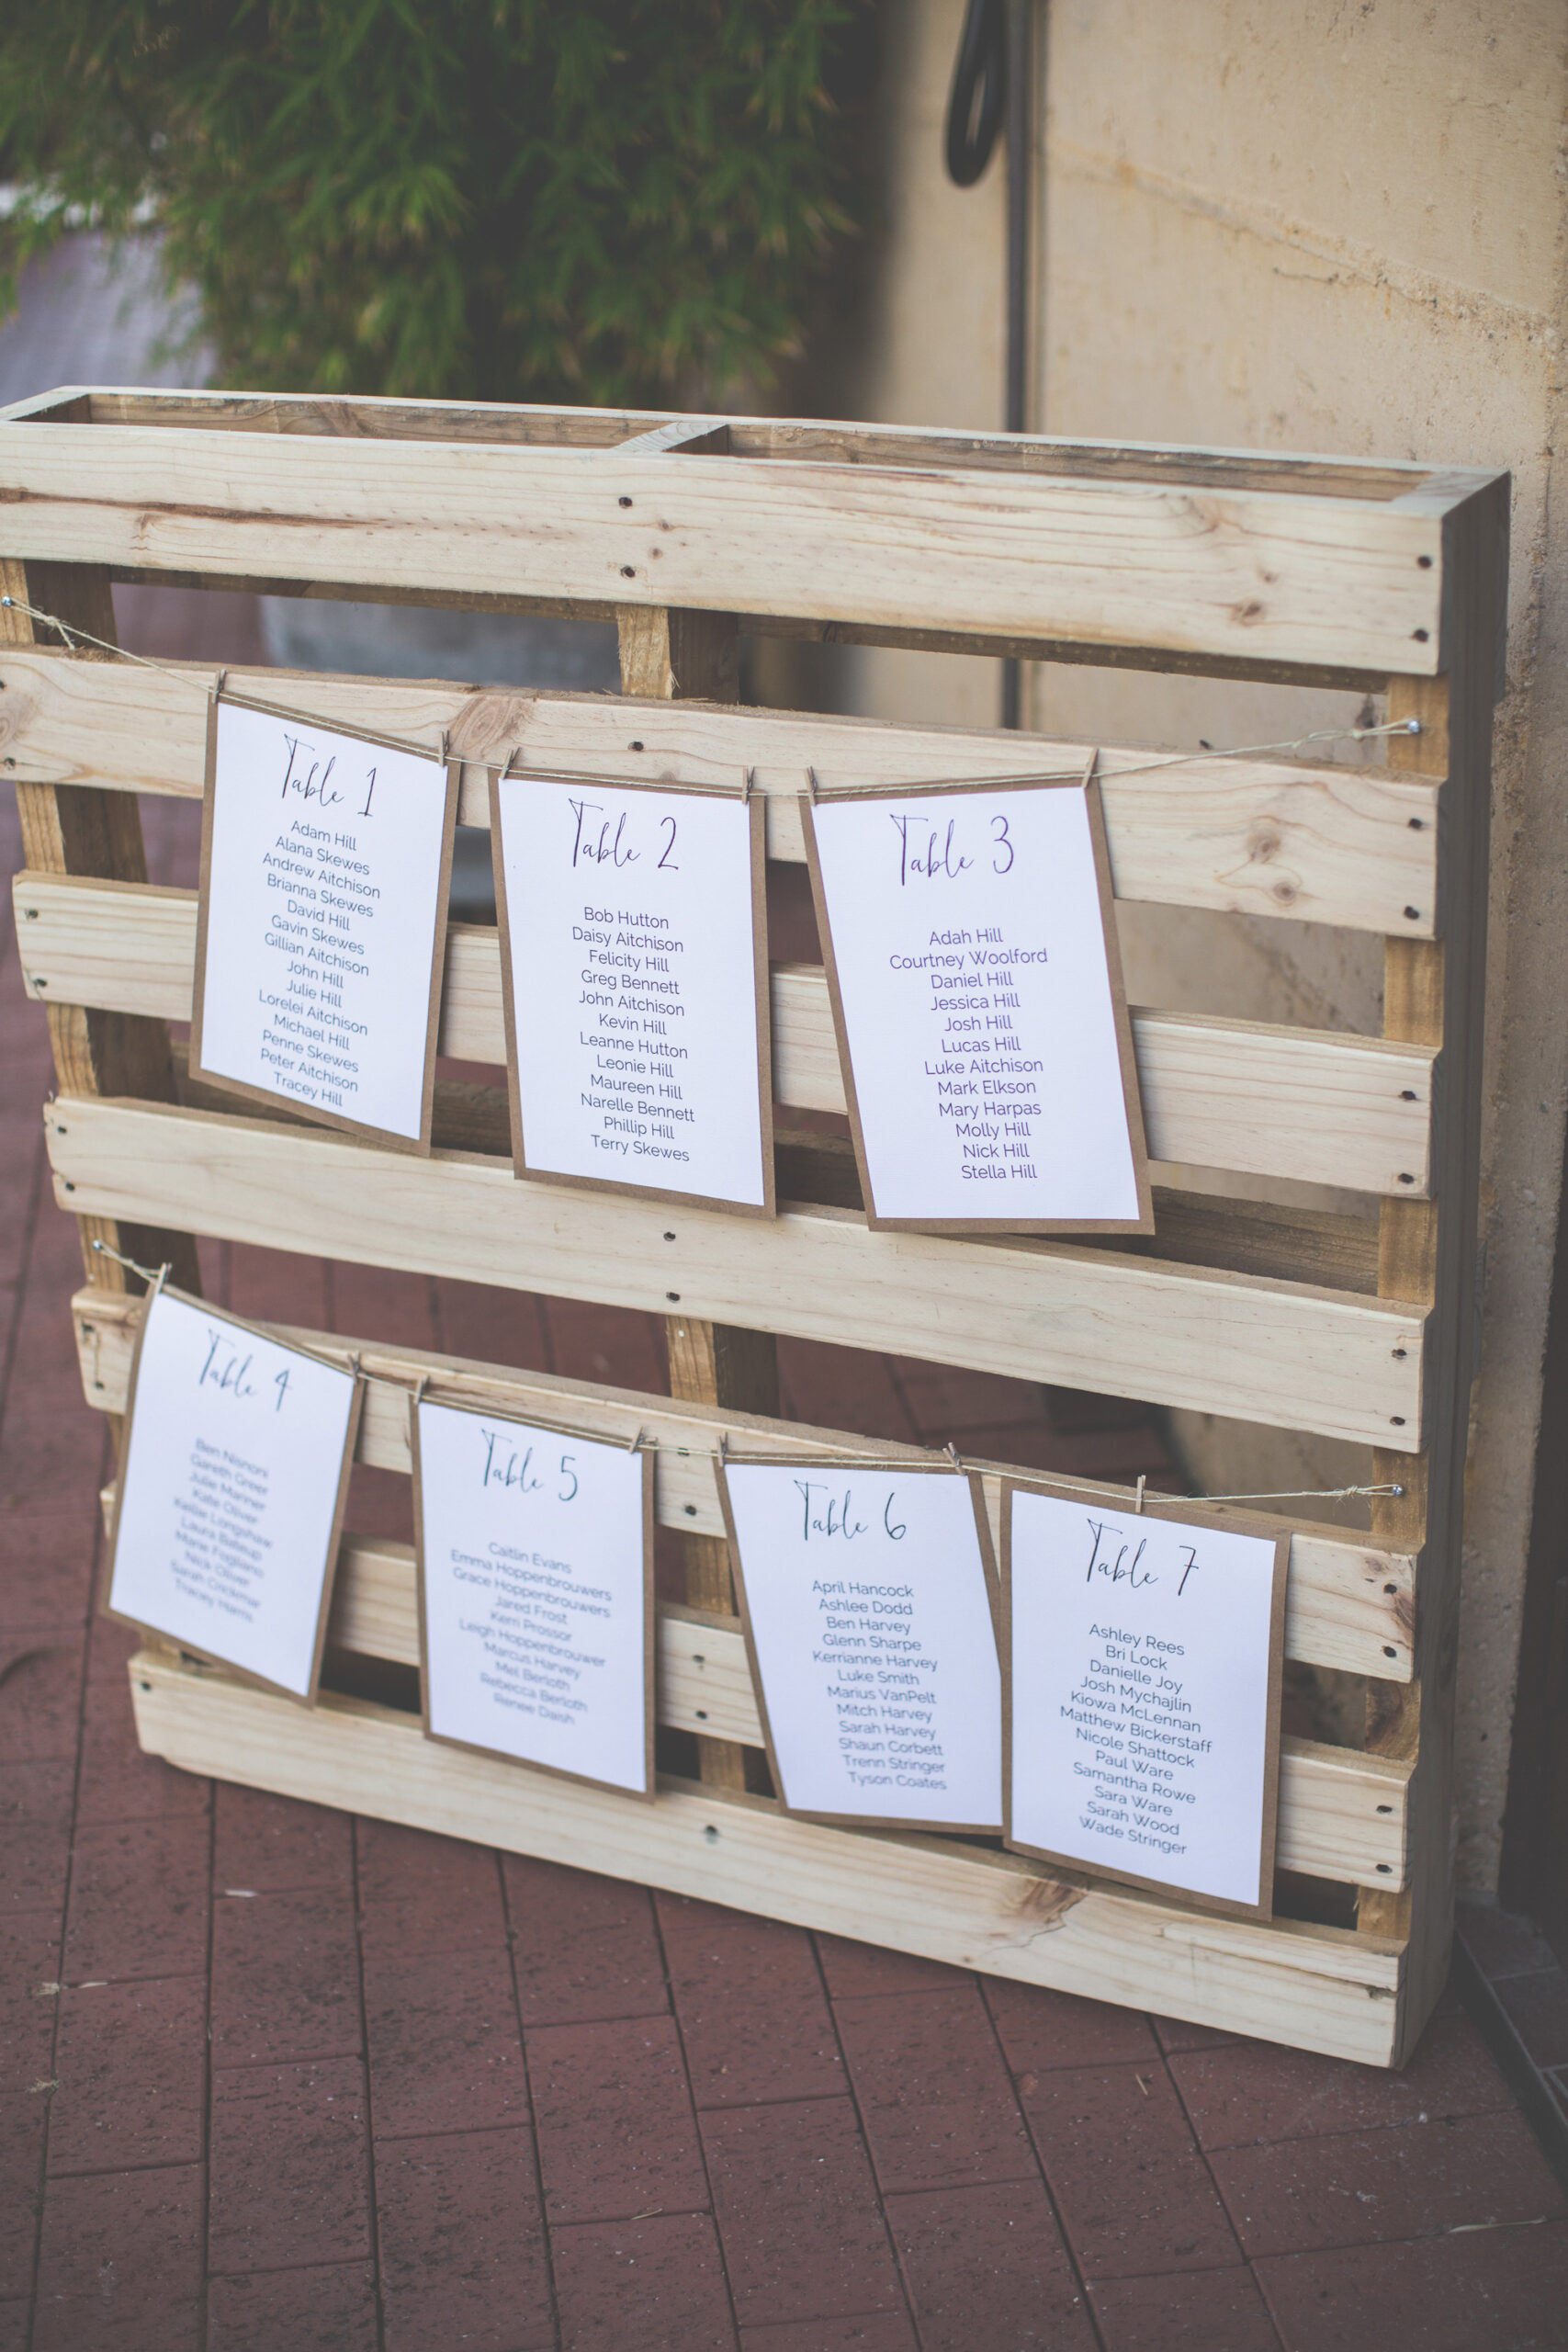 Table 1
Adam Hill
Alana Skewes
Andrew Aitchison
Brianna Skewes
David Hill
Gavin Skewes
Gillian Aitchison
John Hill
Julie Hill
Lorelei Aitchison
Michael Hill
Penne Skewes
Peter Aitchison
Tracey Hill
Table 2
Bob Hutton
Daisy Aitchison
Felicity Hill
Greg Bennett
John Aitchison
Kevin Hill
Leanne Hutton
Leonie Hill
Maureen Hill
Narelle Bennett
Phillip Hill
Terry Skewes
Table 3
Adah Hill
Courtney Woolford
Daniel Hill
Jessica Hill
Josh Hill
Lucas Hill
Luke Aitchison
Mark Elkson
Mary Harpas
Molly Hill
Nick Hill
Stella Hill
Table 4
Ben
Gareth Greer
Julie
Kate Oliver
Kellie Longshaw
Laura
Marie Fogliano
Nick Oliver
Sarah
Tracey Harris
Table 5
Caitlin Evans
Emma Hoppenbrouwers
Grace Hoppenbrouwers
Jared Frost
Kerri Prossor
Leigh Hoppenbrouwer
Marcus Harvey
Mel Berloth
Rebecca Berloth
Renee Daish
Table 6
April Hancock
Ashlee Dodd
Ben Harvey
Glenn Sharpe
Kerrianne Harvey
Luke Smith
Marius VanPelt
Mitch Harvey
Sarah Harvey
Shaun Corbett
Trenn Stringer
Tyson Coates
Table 7
Ashley Rees
Bri Lock
Danielle Joy
Josh Mychajlin
Kiowa McLennan
Matthew Bickerstaff
Nicole Shattock
Paul Ware
Samantha Rowe
Sara Ware
Sarah Wood
Wade Stringer